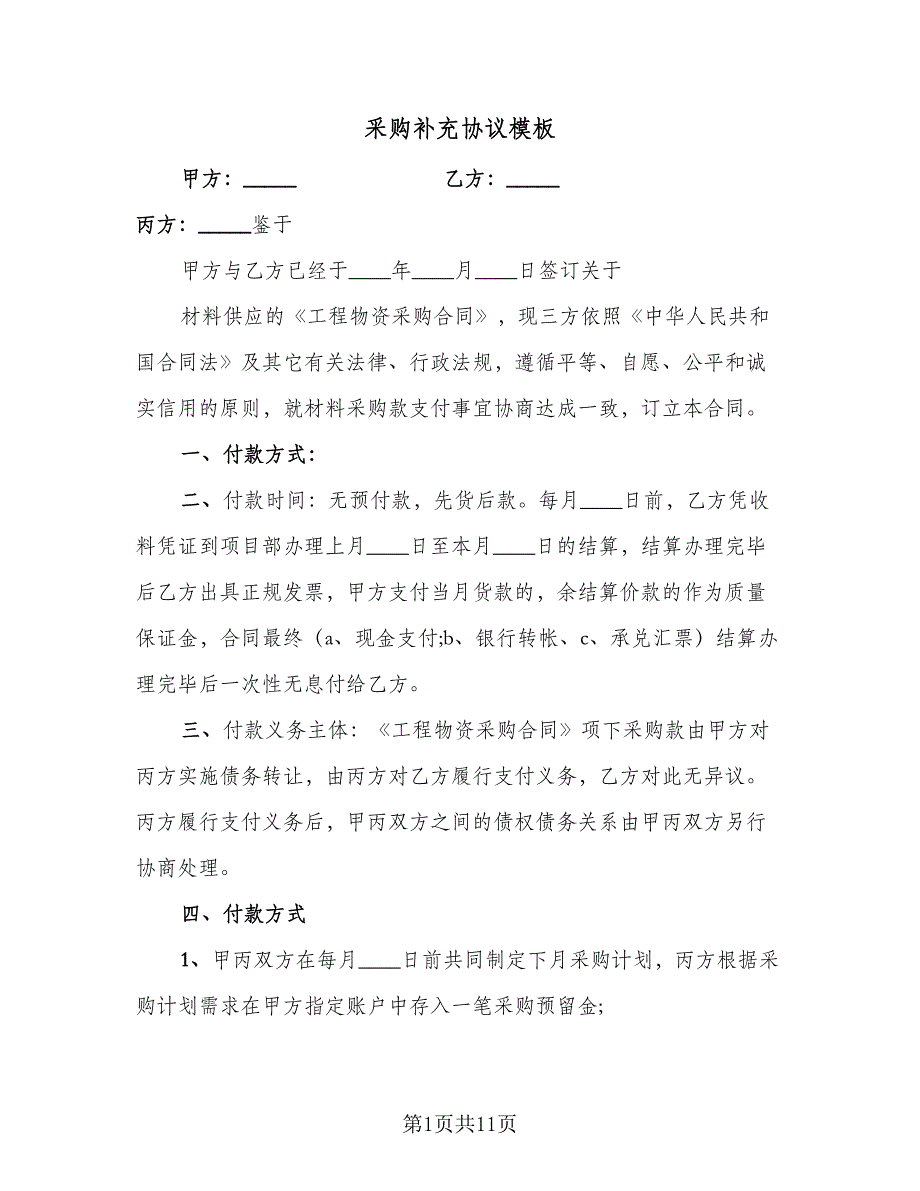 采购补充协议模板
甲方：_____ 乙方：_____
丙方：_____鉴于
甲方与乙方已经于____年____月____日签订关于
材料供应的《工程物资采购合同》，现三方依照《中华人民共和
国合同法》及其它有关法律、行政法规，遵循平等、自愿、公平和诚
实信用的原则，就材料采购款支付事宜协商达成一致，订立本合同。
一、付款方式：
二、付款时间：无预付款，先货后款。每月____日前，乙方凭收
料凭证到项目部办理上月____日至本月____日的结算，结算办理完毕
后乙方出具正规发票，甲方支付当月货款的，余结算价款的作为质量
保证金，合同最终（a、现金支付;b、银行转帐、c、承兑汇票）结算办
理完毕后一次性无息付给乙方。
三、付款义务主体：《工程物资采购合同》项下采购款由甲方对
丙方实施债务转让，由丙方对乙方履行支付义务，乙方对此无异议。
丙方履行支付义务后，甲丙双方之间的债权债务关系由甲丙双方另行
协商处理。
四、付款方式
1、甲丙双方在每月____日前共同制定下月采购计划，丙方根据采
购计划需求在甲方指定账户中存入一笔采购预留金;
第1页共11页